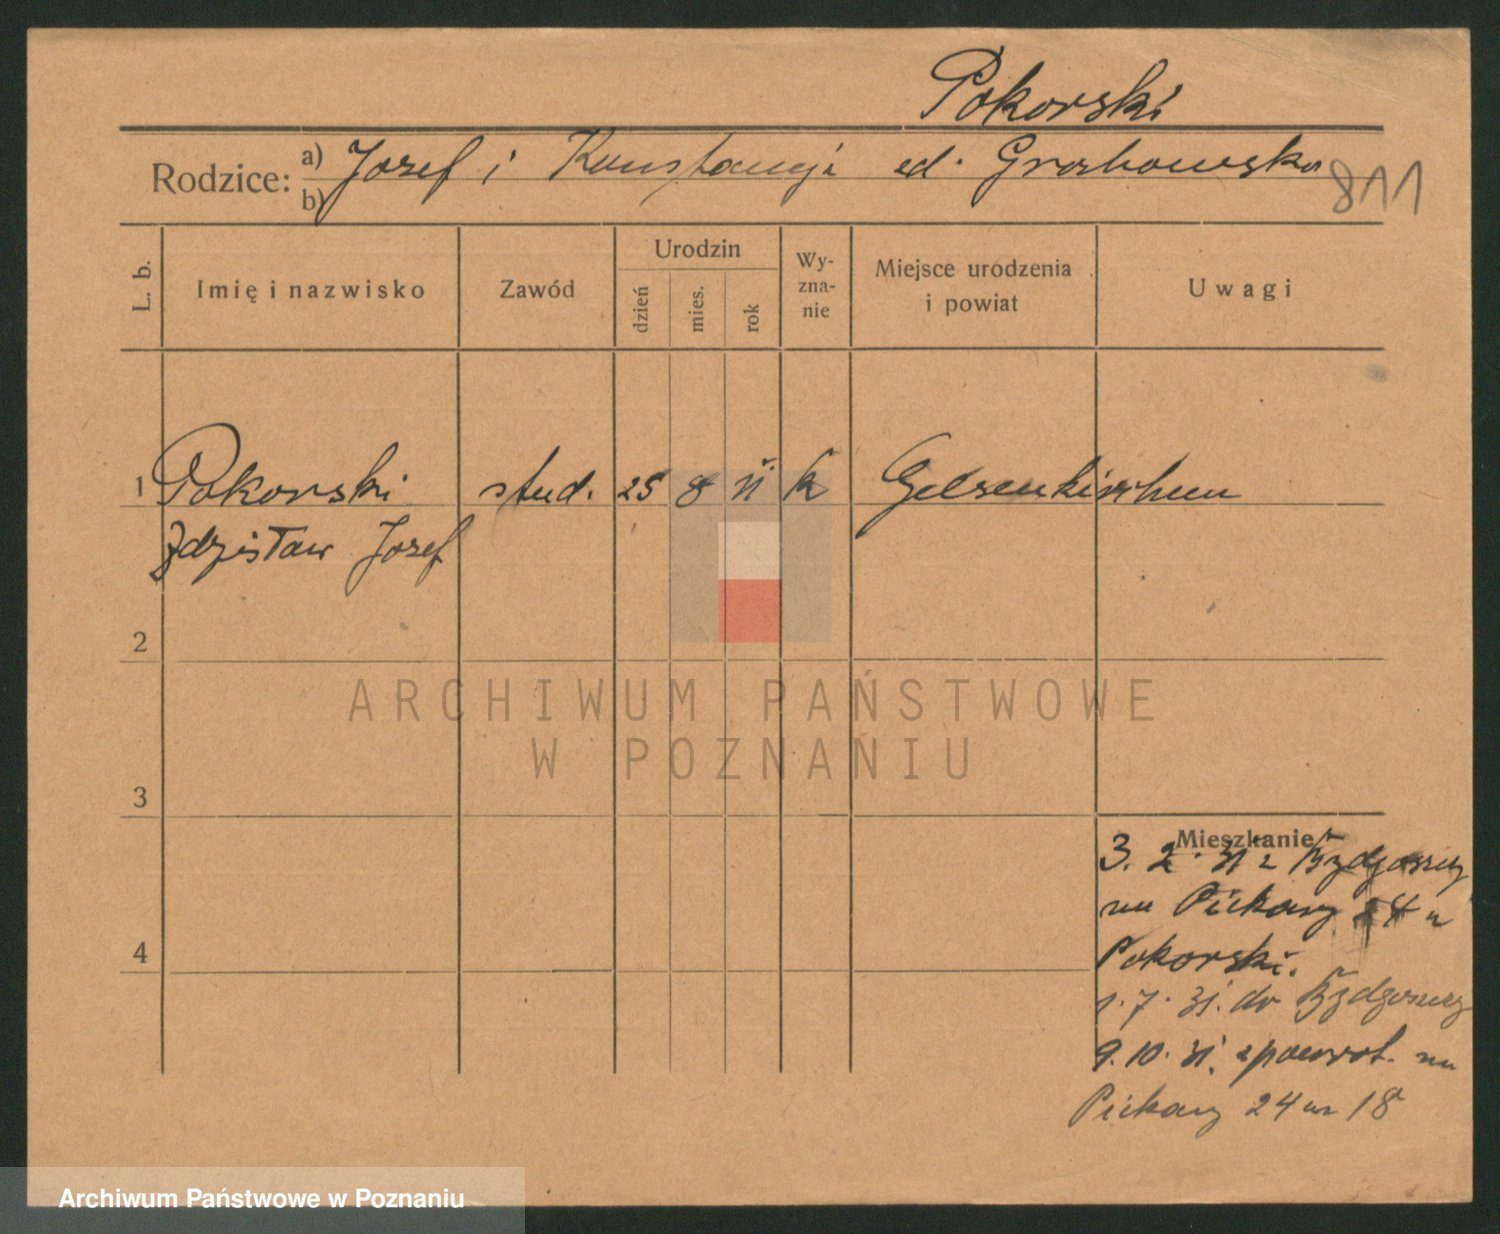 Pokorski
Rodzice: a) Jozef i Konstancja zd. Grabowska 811
b)
L. b. Imię i nazwisko Zawód Urodzin dzień mies. rok Wy-zna-nie Miejsce urodzenia i powiat Uwagi
1 Pokorski stud. 25 8 11 k Gelsenkirchen
Zdzisław Jozef
2
3
4
Mieszkanie
3. 2. 31 z Bydgoszczy
na Piekary 24 u
Pokorski.
1. 7. 31. do Bydgoszczy
9. 10. 31. zpowrot. na
Piekary 24 m 18
ARCHIWUM PAŃSTWOWE
W POZNANIU
Archiwum Państwowe w Poznaniu